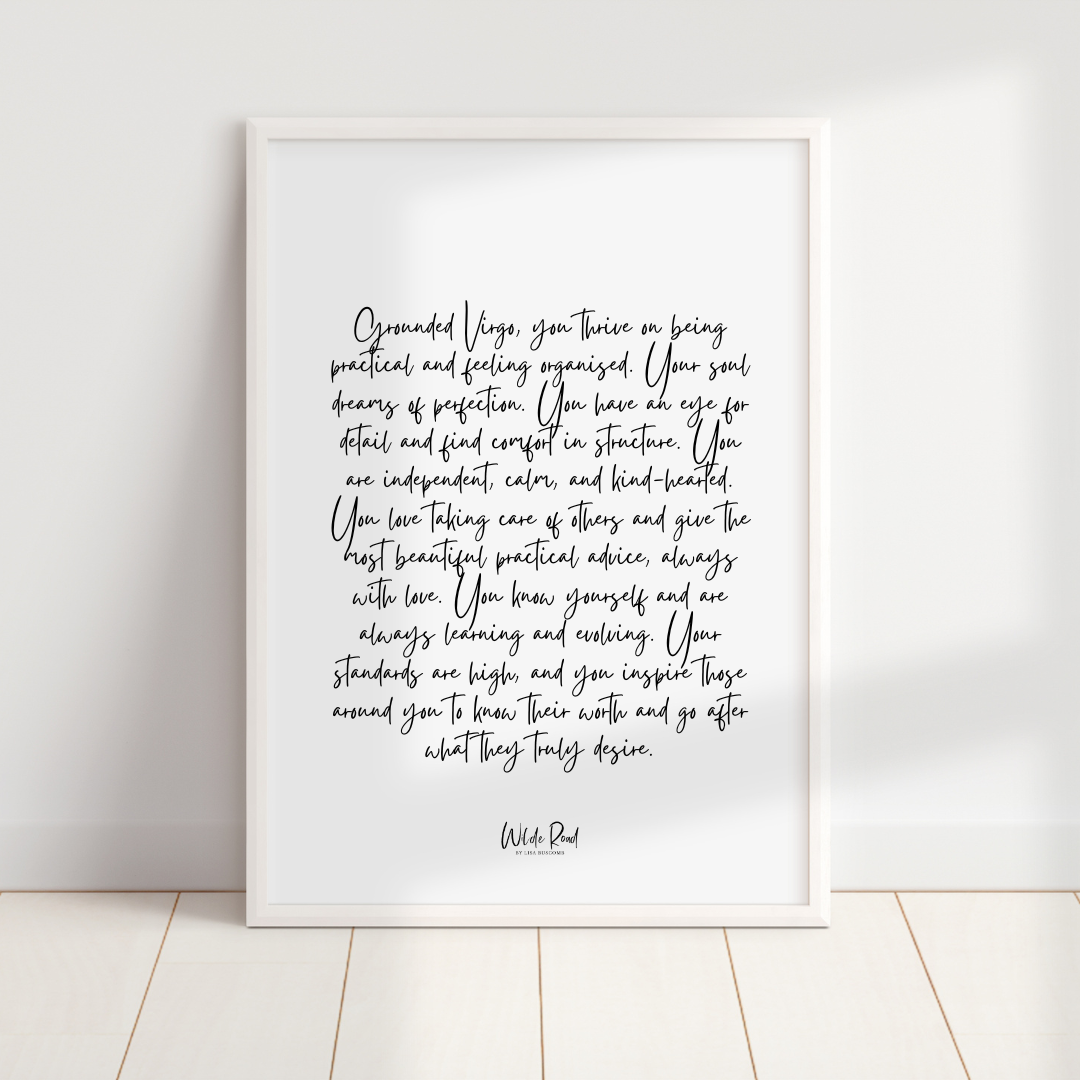 Grounded Virgo, you thrive on being
practical and feeling organised. Your soul
dreams of perfection. You have an eye for
detail and find comfort in structure. You
are independent, calm, and kind-hearted.
You love taking care of others and give the
most beautiful practical advice, always
with love. You know yourself and are
always learning and evolving. Your
standards are high, and you inspire those
around you to know their worth and go after
what they truly desire.
Wilde Road
BY LISA BUSCOMB